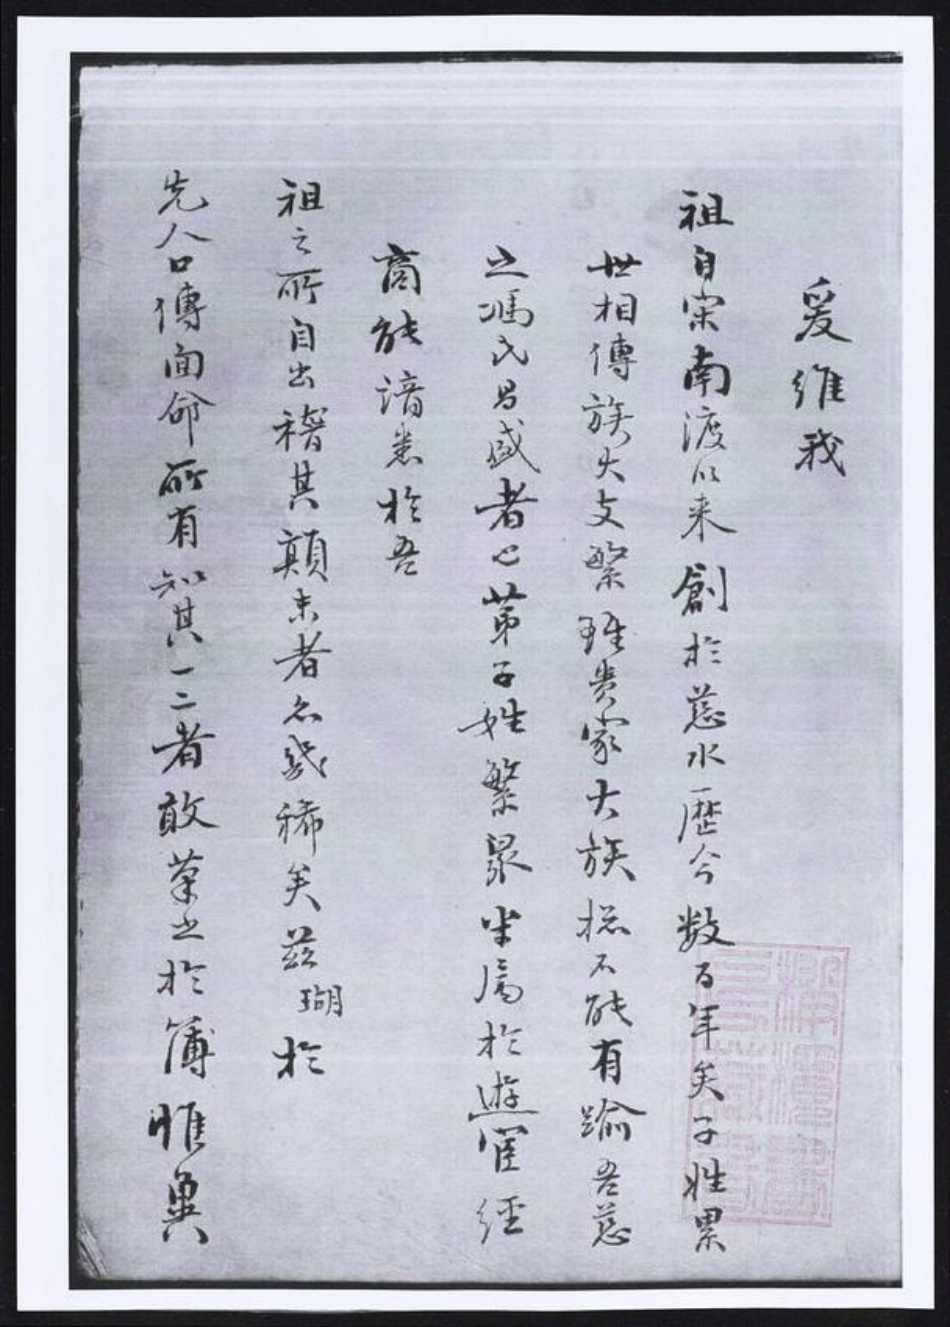 爰維我
祖自宋南渡以来創於慈水歷今数百年矣子姓累
世相傳族大支繁雖貴家大族揔不能有踰吾慈
之馮氏昌盛者也苐子姓繁衆半属於遊宦經
商能諳悉於吾
祖之所自出稽其顛末者名幾稀矣茲瑚於
先人口傳面命所有知其一二者敢筆之於簿惟冀